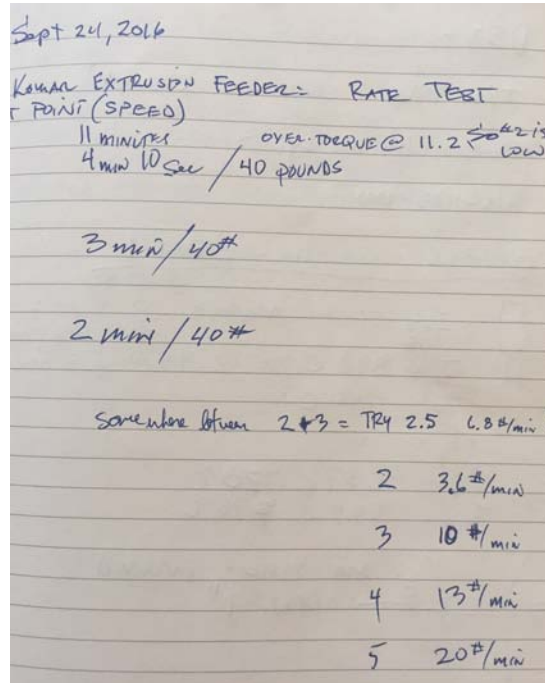 Sept 24, 2016
Komar EXTRUSION FEEDER: RATE TEST
T POINT (SPEED)
11 minutes OVER-TORQUE @ 11.2 So #2 is LOW
4 min 10 Sec / 40 POUNDS
3 min / 40#
2 min / 40#
Somewhere between 2 + 3 = TRY 2.5 6.8 #/min
2 3.6 #/min
3 10 #/min
4 13 #/min
5 20 #/min